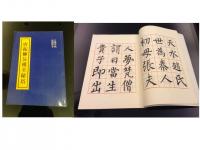 天水趙氏
世為秦人
初母張夫
人夢梵僧
謂曰當生
貴子即出